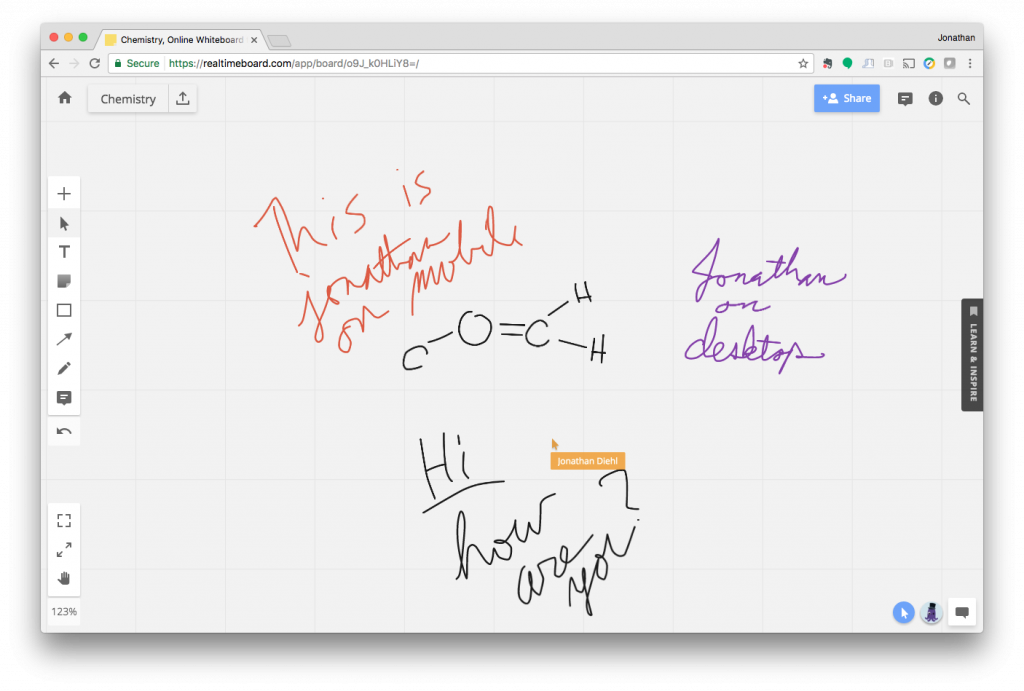 Chemistry, Online Whiteboard
Jonathan
Secure https://realtimeboard.com/app/board/o9J_k0HLiY8=/
Chemistry
Share
This is
Jonathan
on mobile
T
C O = C H
H
Jonathan
on
desktop
LEARN & INSPIRE
Hi
Jonathan Diehl
how
are you?
123%